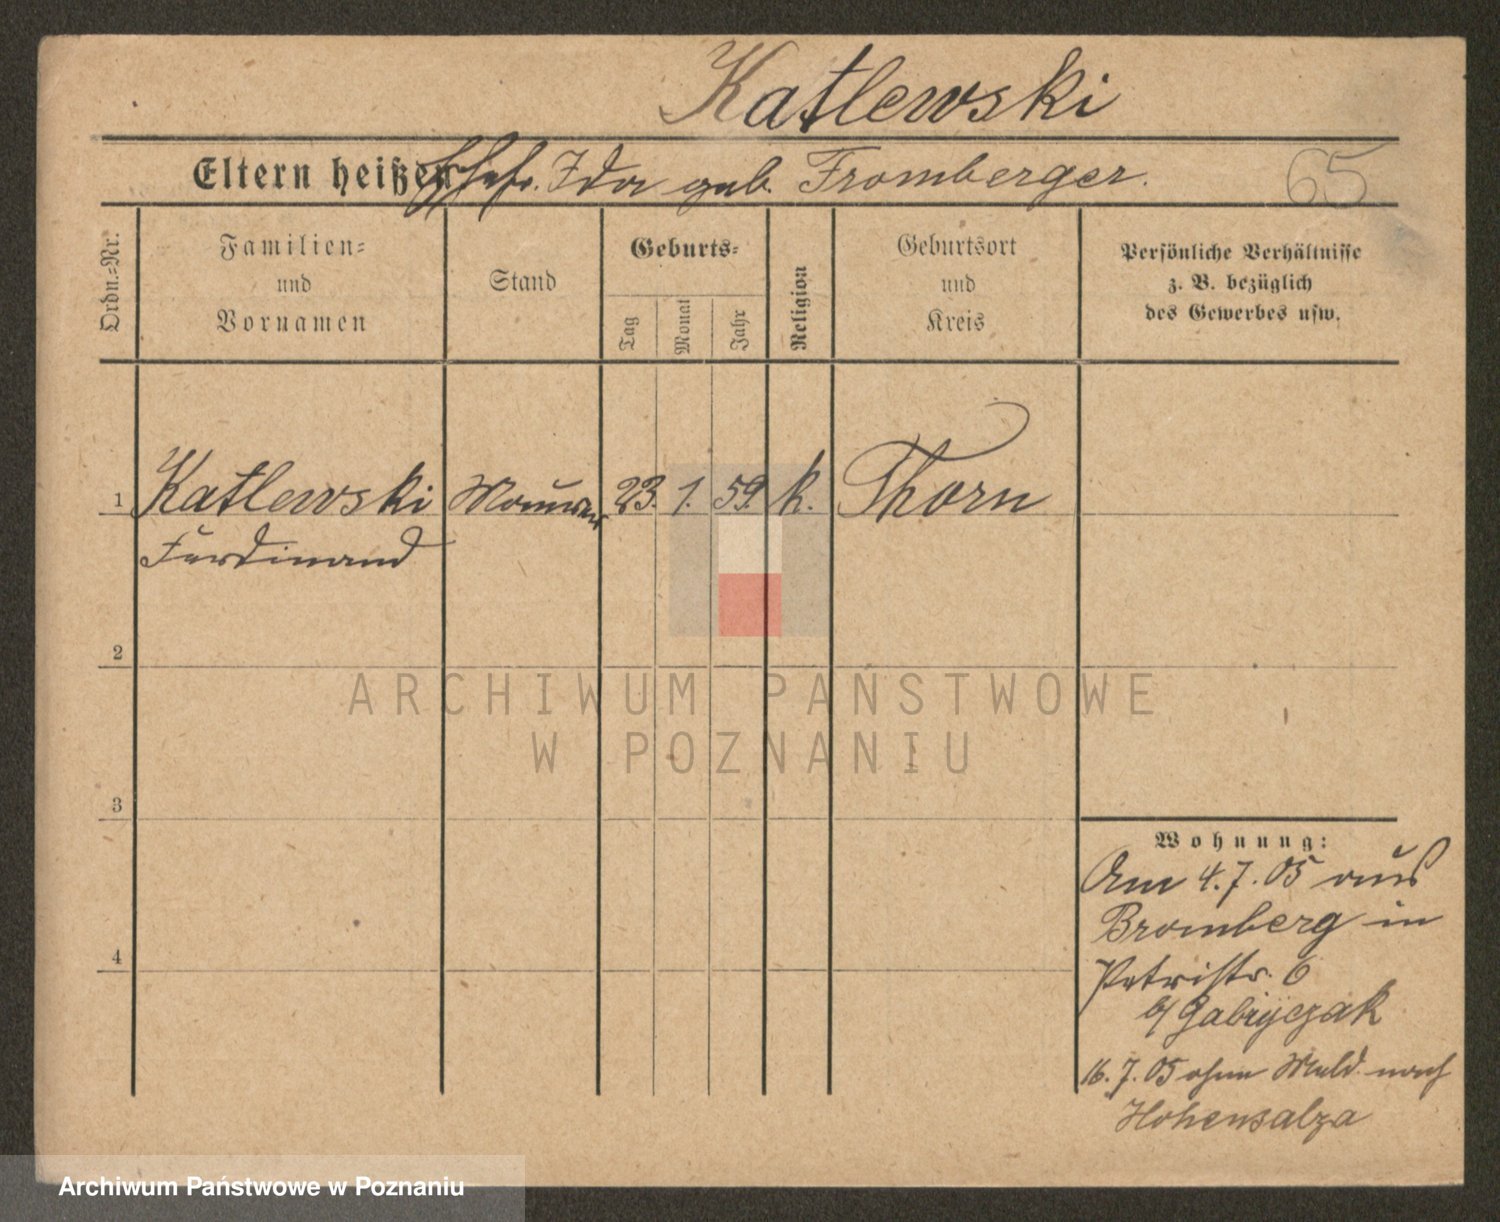 Katlewski
Eltern heißen Ehefr. Ida geb. Fromberger.
65
Ordn.=Nr.
Familien=
und
Vornamen
Stand
Geburts=
Tag
Monat
Jahr
Religion
Geburtsort
und
Kreis
Persönliche Verhältnisse
z. B. bezüglich
des Gewerbes usw.
1 Katlewski Maurer 23. 1. 59. k. Thorn
Ferdinand
2
3
4
ARCHIWUM PAŃSTWOWE
W POZNANIU
Wohnung:
Am 4.7.05 aus
Bromberg in
Petristr. 6
b/ Gabryczak
16.7.05 ohne Meld. nach
Hohensalza
Archiwum Państwowe w Poznaniu